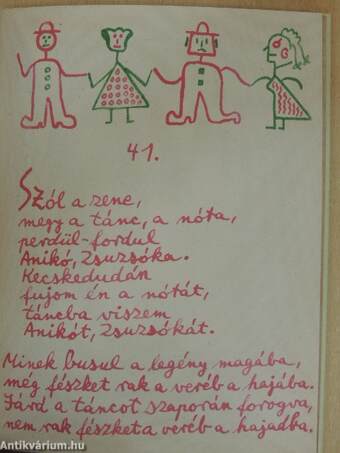 41.
Szól a zene,
megy a tánc, a nóta,
perdül-fordul
Anikó, Zsuzsóka.
Kecskedudán
fujom én a nótát,
táncba viszem
Anikót, Zsuzsókát.
Minek busul a legény magába,
még fészket rak a veréb a hajába.
Járd a táncot szaporán forogva,
nem rak fészket a veréb a hajadba.
Antikvárium.hu